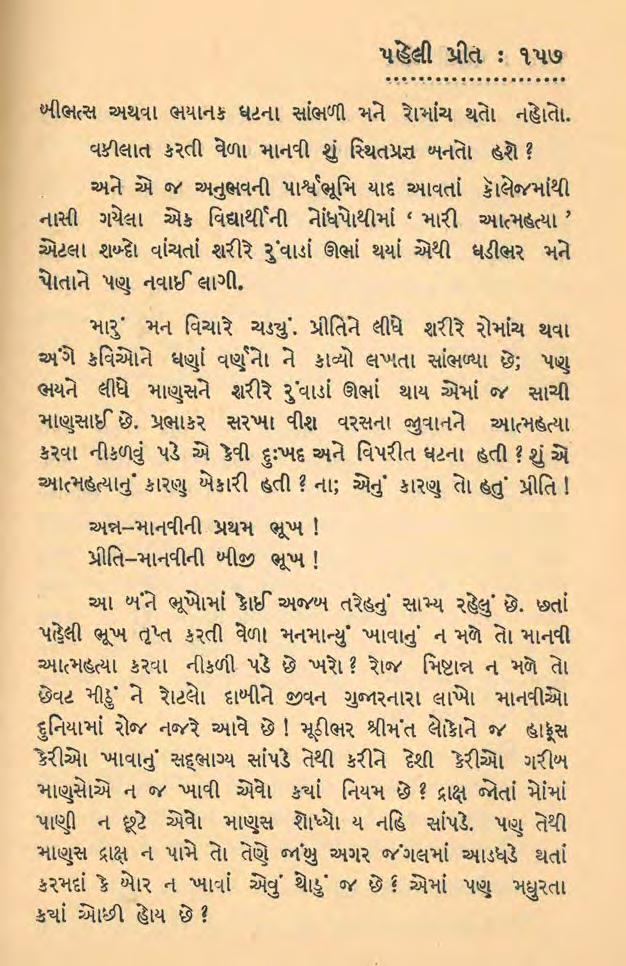 પહેલી પ્રીત : ૧૫૭
બીભત્સ અથવા ભયાનક ઘટના સાંભળી મને રોમાંચ થતો નહોતો.
વકીલાત કરતી વેળા માનવી શું સ્થિતપ્રજ્ઞ બનતો હશે ?
અને એ જ અનુભવની પાર્શ્વભૂમિ યાદ આવતાં કૉલેજમાંથી
નાસી ગયેલા એક વિદ્યાર્થીની નોંધપોથીમાં ‘ મારી આત્મહત્યા ’
એટલા શબ્દો વાંચતાં શરીરે રુંવાડાં ઊભાં થયાં એથી ઘડીભર મને
પોતાને પણ નવાઈ લાગી.
મારું મન વિચારે ચડ્યું. પ્રીતિને લીધે શરીરે રોમાંચ થવા
અંગે કવિઓને ઘણાં વર્ણનો ને કાવ્યો લખતા સાંભળ્યા છે; પણ
ભયને લીધે માણસને શરીરે રુંવાડાં ઊભાં થાય એમાં જ સાચી
માણસાઈ છે. પ્રભાકર સરખા વીશ વરસના જુવાનને આત્મહત્યા
કરવા નીકળવું પડે એ કેવી દુઃખદ અને વિપરીત ઘટના હતી ? શું એ
આત્મહત્યાનું કારણ બેકારી હતી ? ના; એનું કારણ તો હતું પ્રીતિ !
અન્ન–માનવીની પ્રથમ ભૂખ !
પ્રીતિ–માનવીની બીજી ભૂખ !
આ બંને ભૂખોમાં કોઈ અજબ તરેહનું સામ્ય રહેલું છે. છતાં
પહેલી ભૂખ તૃપ્ત કરતી વેળા મનમાન્યું ખાવાનું ન મળે તો માનવી
આત્મહત્યા કરવા નીકળી પડે છે ખરો ? રોજ મિષ્ટાન્ન ન મળે તો
છેવટ મીઠું ને રોટલો દાબીને જીવન ગુજારનારા લાખો માનવીઓ
દુનિયામાં રોજ નજરે આવે છે ! મૂઠીભર શ્રીમંત લોકોને જ હાફૂસ
કેરીઓ ખાવાનું સદ્ભાગ્ય સાંપડે તેથી કરીને દેશી કેરીઓ ગરીબ
માણસોએ ન જ ખાવી એવો ક્યાં નિયમ છે ? દ્રાક્ષ જોતાં મોંમાં
પાણી ન છૂટે એવો માણસ શોધ્યો ય નહિ સાંપડે. પણ તેથી
માણસ દ્રાક્ષ ન પામે તો તેણે જાંબુ અગર જંગલમાં આડધડે થતાં
કરમદાં કે બોર ન ખાવાં એવું થોડું જ છે ? એમાં પણ મધુરતા
ક્યાં ઓછી હોય છે ?